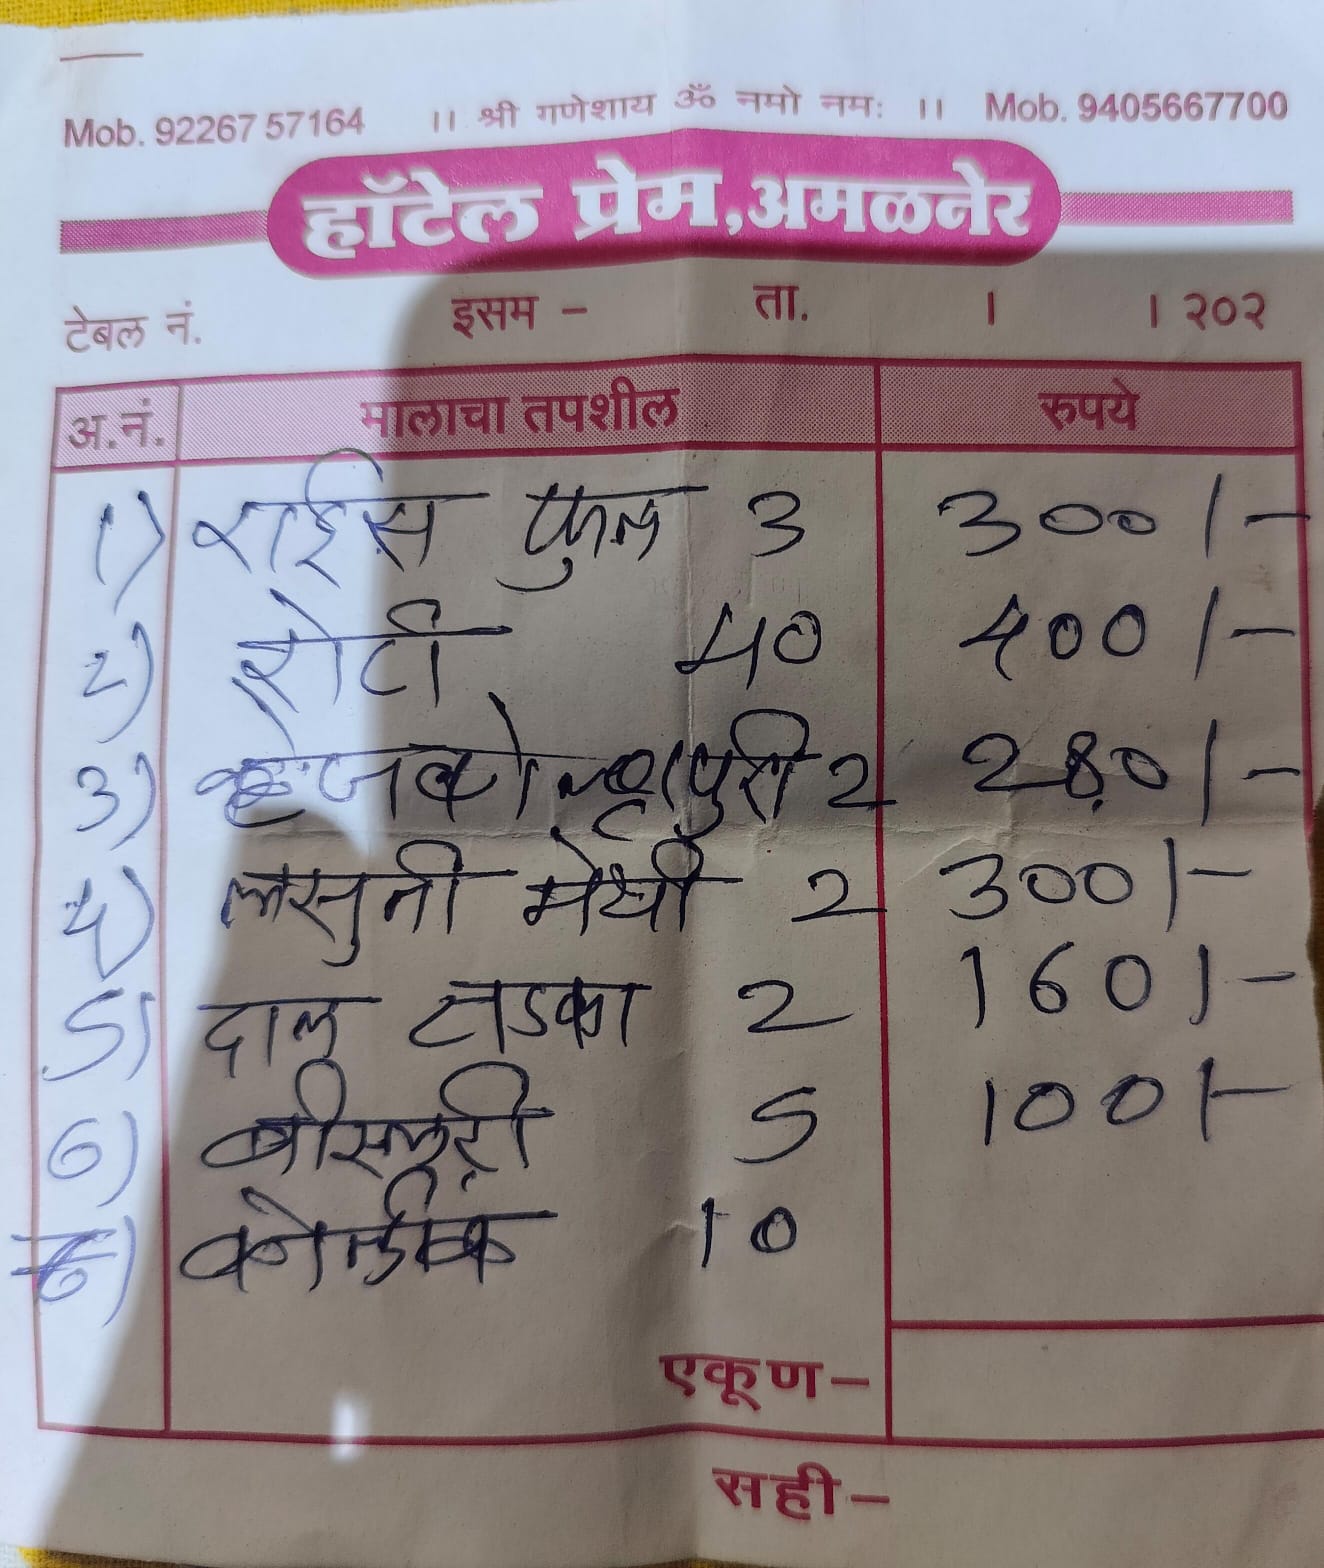 Mob. 92267 57164 ।। श्री गणेशाय ॐ नमो नमः ।। Mob. 9405667700
हॉटेल प्रेम,अमळनेर
टेबल नं. इसम – ता. । । २०२
अ.नं. मालाचा तपशील रुपये
1) राईस फुल 3 300/-
2) रोटी 40 400/-
3) व्हेज कोल्हापुरी 2 280/-
4) लसुनी मेथी 2 300/-
5) दाल तडका 2 160/-
6) बीसलरी 5 100/-
10
एकूण–
सही–